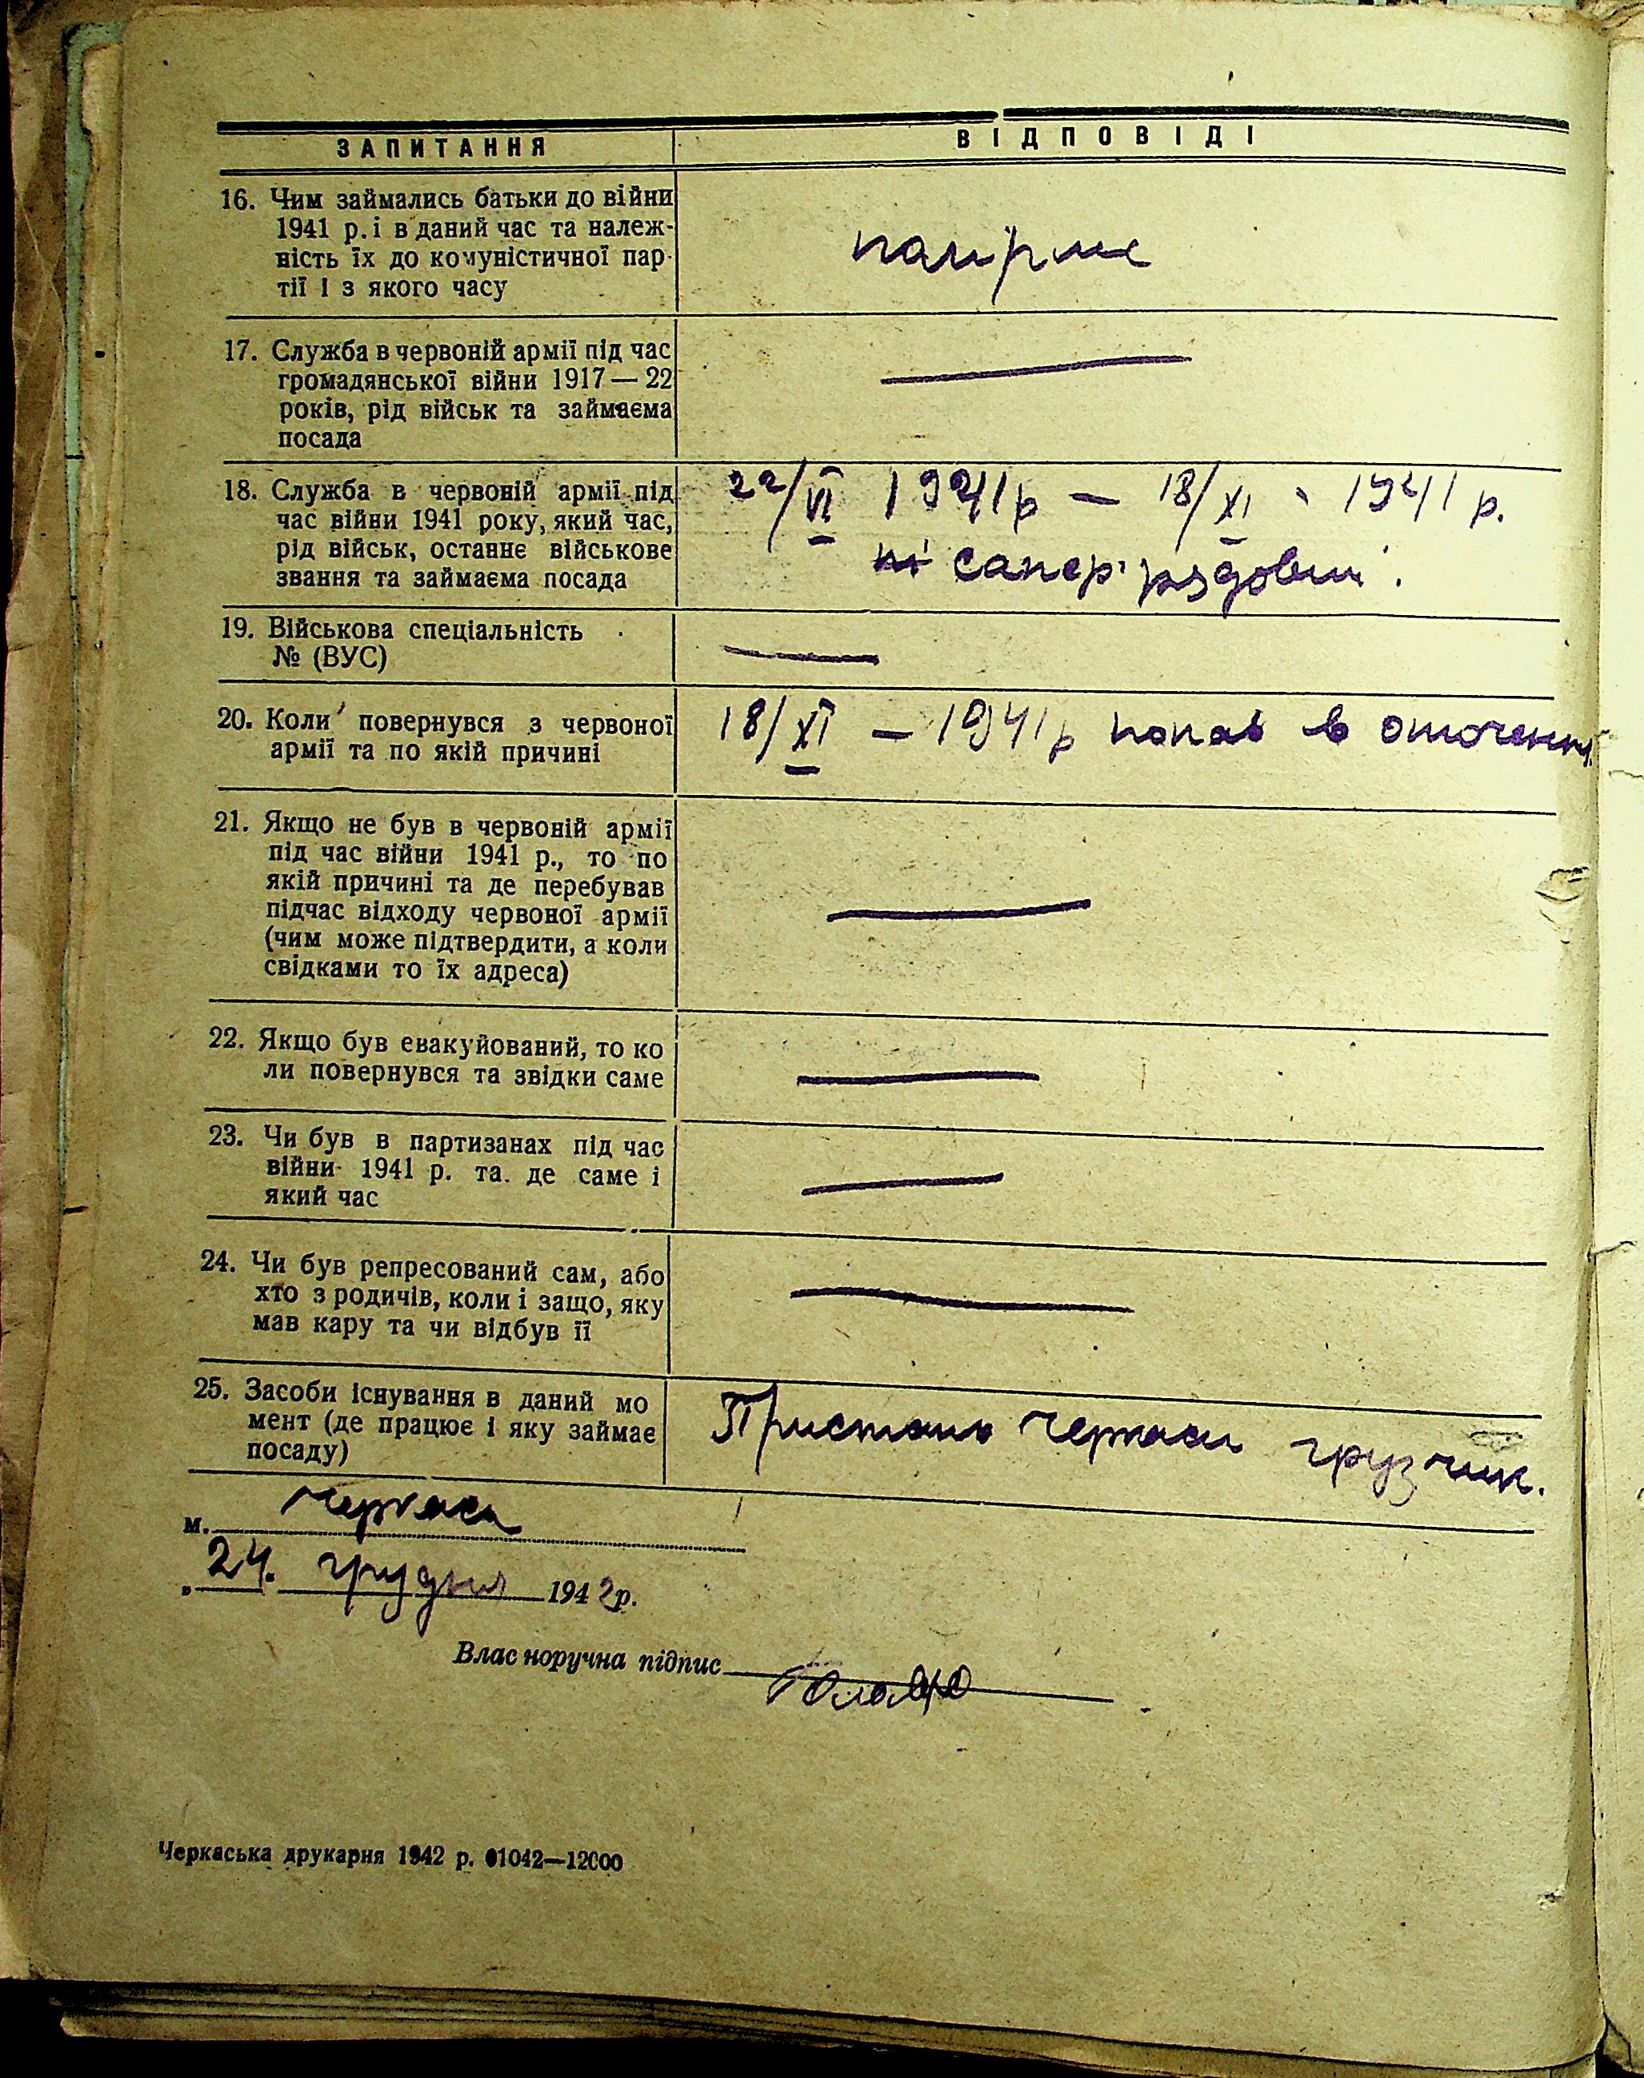 ЗАПИТАННЯ
ВІДПОВІДІ
16. Чим займались батьки до війни
1941 р. і в даний час та належ-
ність їх до комуністичної пар-
тії і з якого часу
17. Служба в червоній армії під час
громадянської війни 1917 — 22
років, рід військ та займаєма
посада
18. Служба в червоній армії під
час війни 1941 року, який час,
рід військ, останнє військове
звання та займаєма посада
22/VI 1941р — 18/XI - 1941 р.
сапер рядовий.
19. Військова спеціальність
№ (ВУС)
20. Коли повернувся з червоної
армії та по якій причині
18/XI — 1941р попав в оточення.
21. Якщо не був в червоній армії
під час війни 1941 р., то по
якій причині та де перебував
підчас відходу червоної армії
(чим може підтвердити, а коли
свідками то їх адреса)
22. Якщо був евакуйований, то ко
ли повернувся та звідки саме
23. Чи був в партизанах під час
війни 1941 р. та. де саме і
який час
24. Чи був репресований сам, або
хто з родичів, коли і защо, яку
мав кару та чи відбув її
25. Засоби існування в даний мо
мент (де працює і яку займає
посаду)
Пристань Черкаси грузчик.
м. Черкаси
„ 24. грудня 1942р.
Влас норучна підпис
Черкаська друкарня 1942 р. 01042—12000